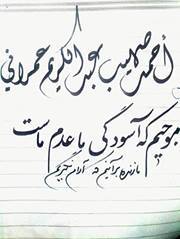 أحمد صهيب عبد الكريم عمراني
موجیم که آسودگی ما عدم ماست
ما زنده بر آنیم که آرام نگیریم